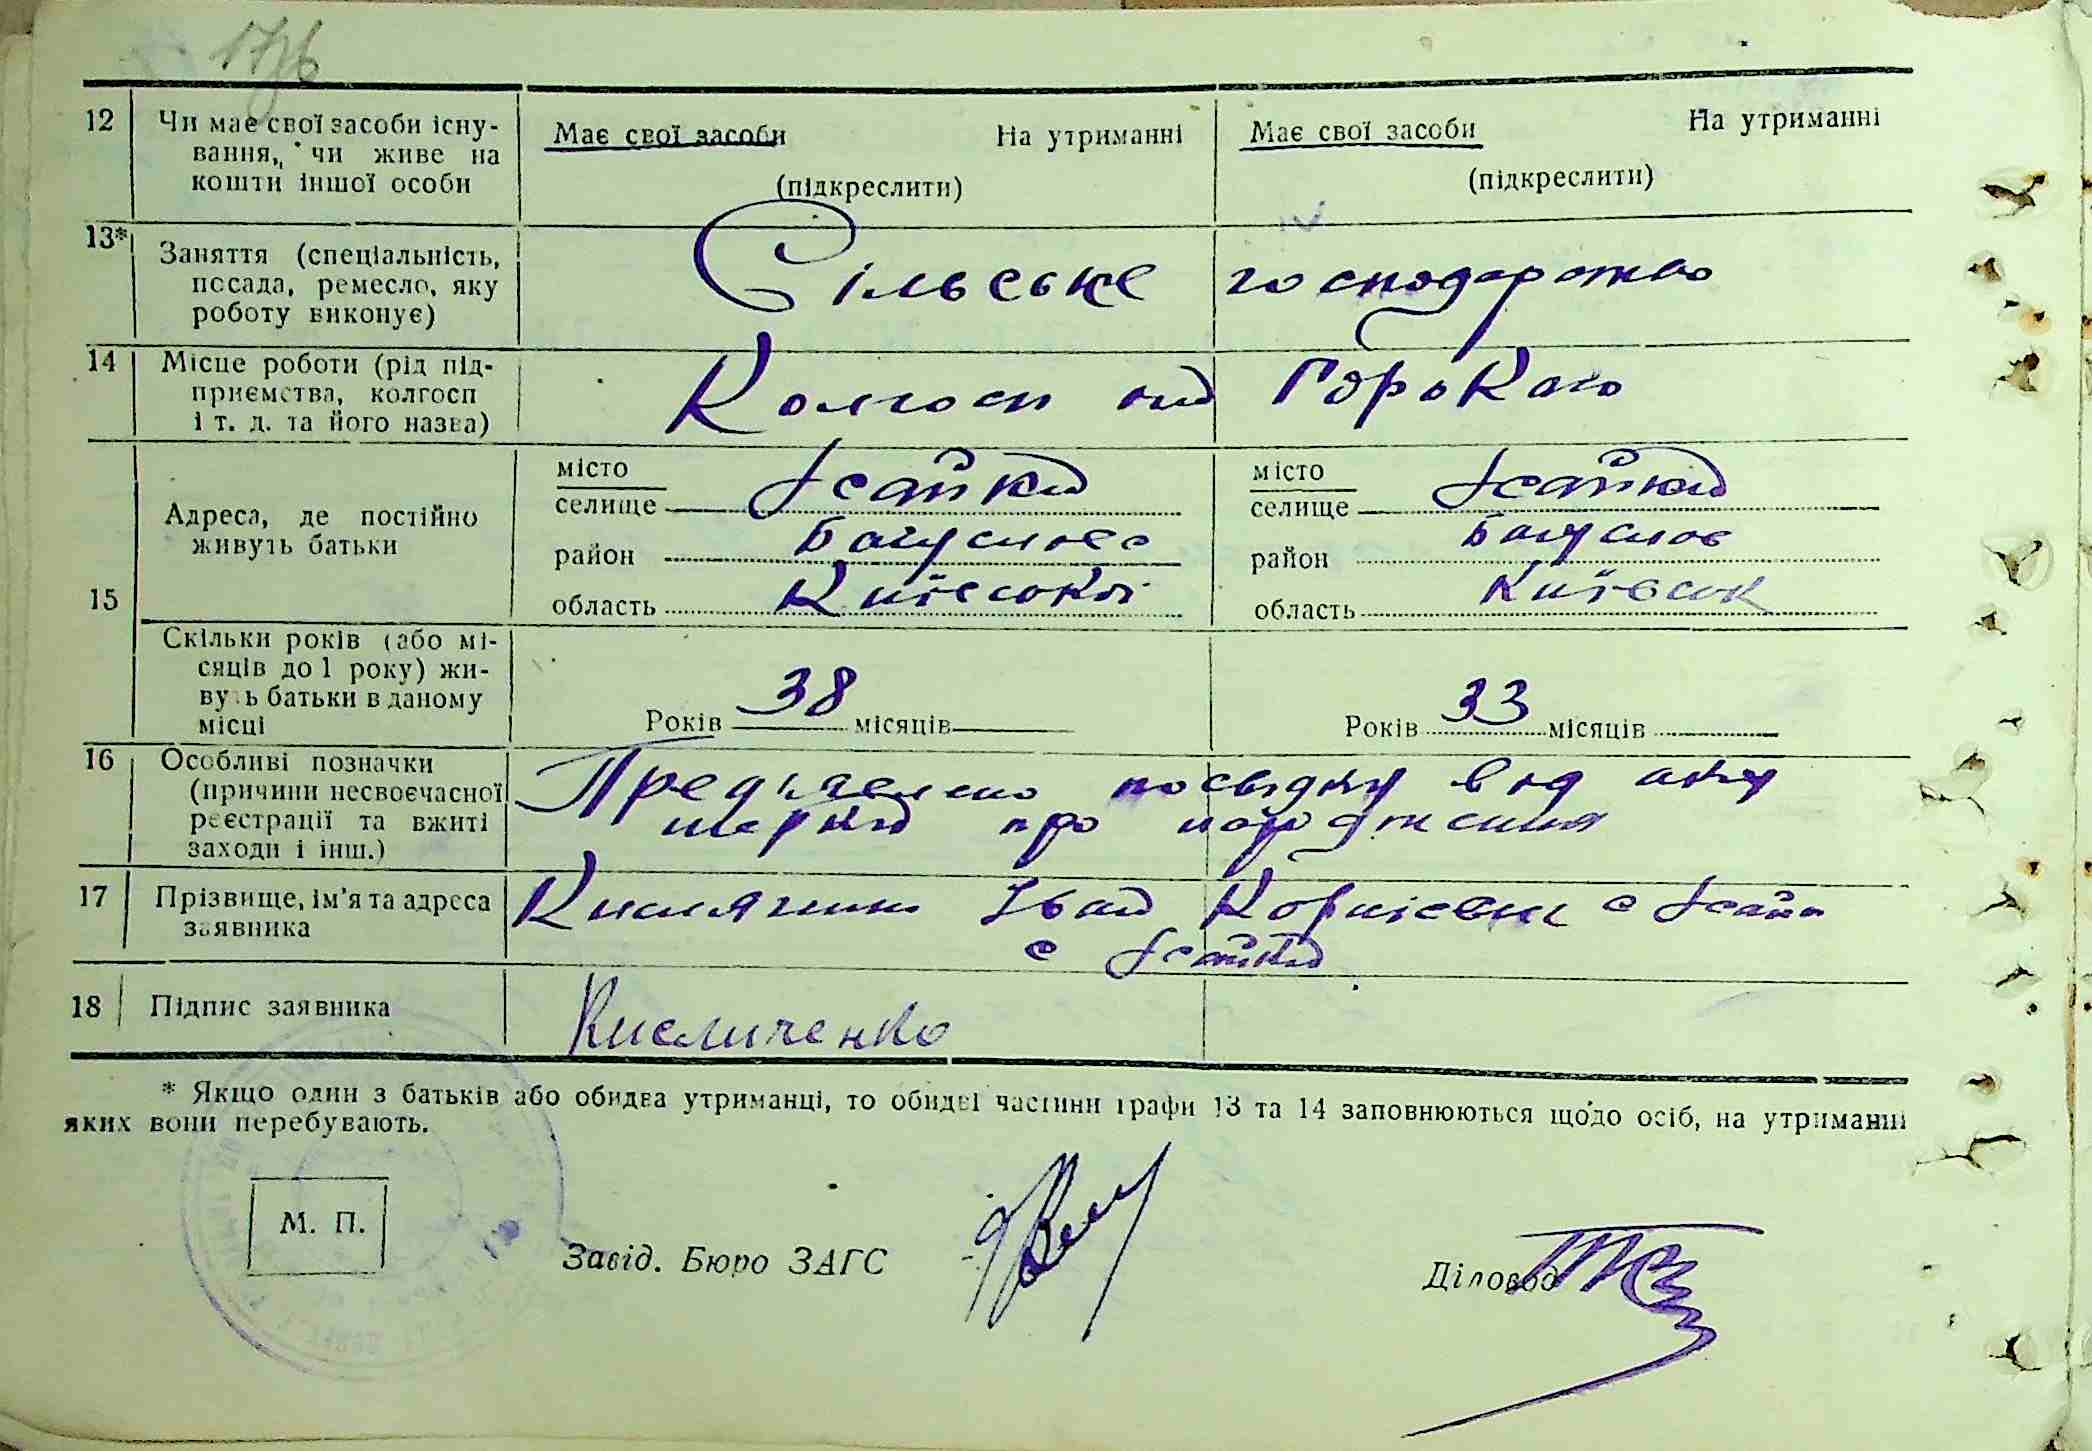 176
12 Чи має свої засоби існу-
вання, чи живе на
кошти іншої особи
Має свої засоби На утриманні
(підкреслити)
Має свої засоби На утриманні
(підкреслити)
13* Заняття (спеціальність,
посада, ремесло, яку
роботу виконує)
Сільське господарство
14 Місце роботи (рід під-
приємства, колгосп
і т. д. та його назва)
Колгосп Горького
15 Адреса, де постійно
живуть батьки
місто
селище Ісайки
район Богуслов
область Київської
місто
селище Ісайки
район Богуслов
область Київськ
Скільки років (або мі-
сяців до 1 року) жи-
вуть батьки в даному
місці
Років 38 місяців
Років 33 місяців
16 Особливі позначки
(причини несвоєчасної
реєстрації та вжиті
заходи і інш.)
посвідку від аку
шерки про народження
17 Прізвище, ім'я та адреса
заявника
Іван Корнієвич с Ісайк
с Ісайки
18 Підпис заявника
Кисличенко
* Якщо один з батьків або обидва утриманці, то обидві частини графи 13 та 14 заповнюються щодо осіб, на утриманні
яких вони перебувають.
М. П.
Завід. Бюро ЗАГС
Діловод